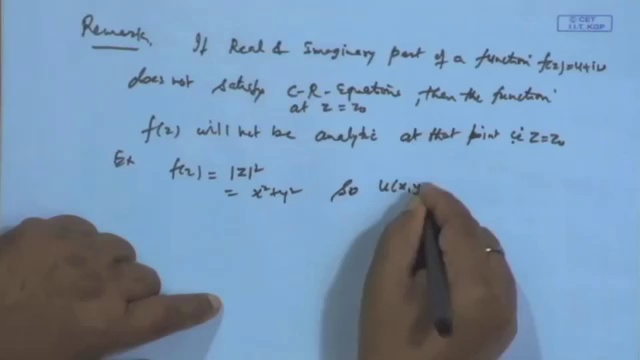 © CET
I.I.T. KGP
Remark. If Real & Imaginary part of a function f(z)=u+iv
does not satisfy C-R-Equations, then the function
at z=z₀
f(z) will not be analytic at that point ie z=z₀
Ex f(z) = |z|²
= x²+y² So u(x,y